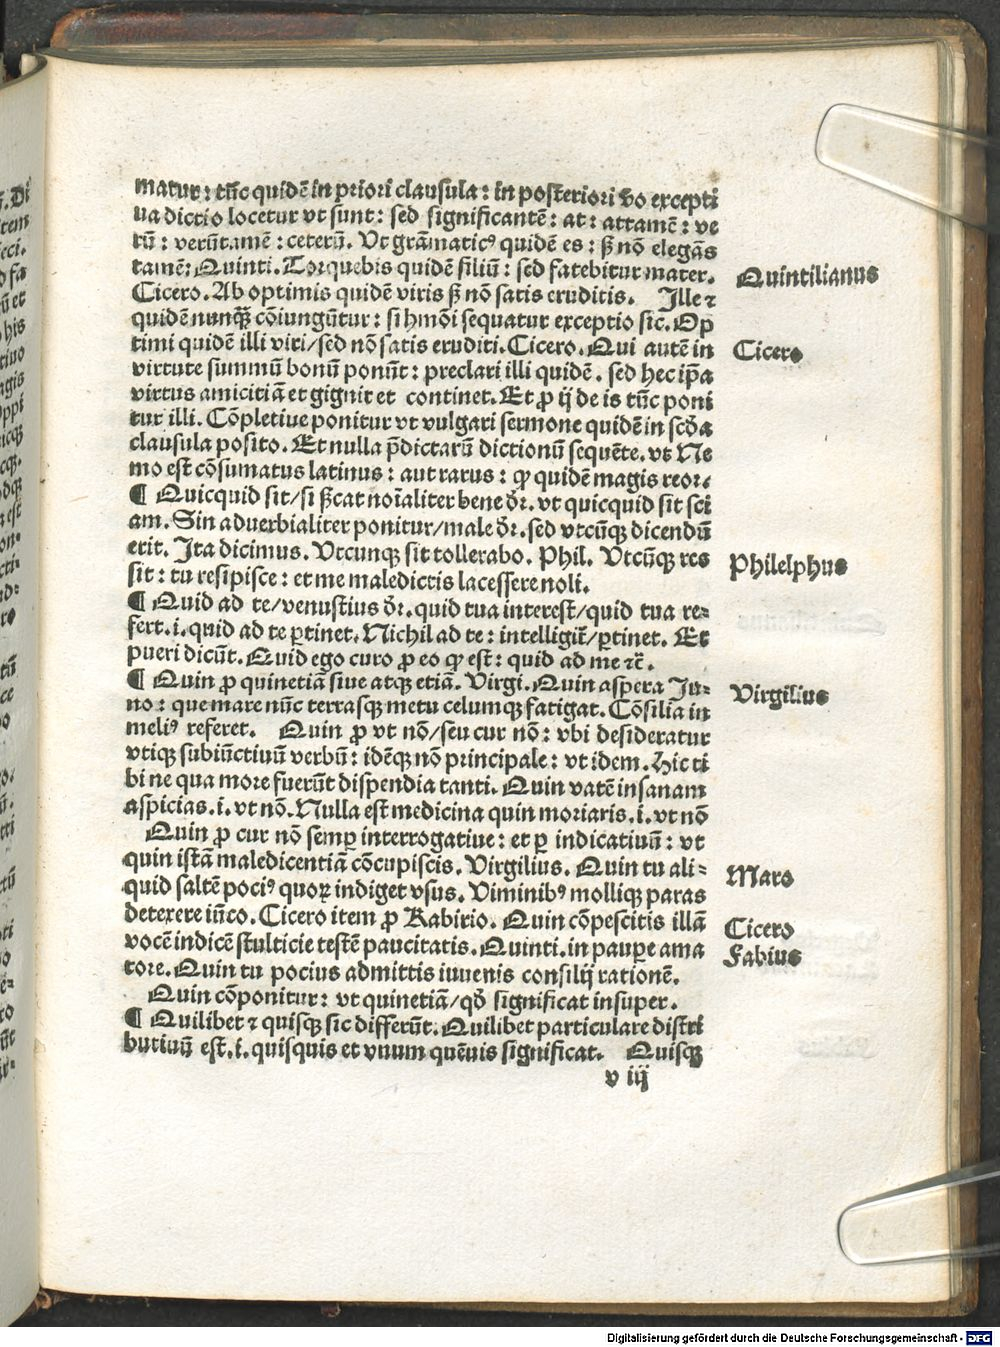 matur: tūc quidē in priori clausula: in posteriori v̄o excepti
ua dictio locetur vt sunt: sed significantē: at: attamē: ve
rū: verūtamē: ceterū. Vt grāmaticꝰ quidē es: sꝫ nō elegās
tamē: Quinti. Torquebis quidē filiū: sed fatebitur mater.
Quintilianus
Cicero. Ab optimis quidē viris sꝫ nō satis eruditis. Ille ⁊
quidē nunqꝫ cōiungūtur: si hmōi sequatur exceptio sic. Op
timi quidē illi viri/sed nō satis eruditi. Cicero. Qui autē in
Cicero
virtute summū bonū ponūt: preclari illi quidē. sed hec ip̄a
virtus amicitiā et gignit et continet. Et ꝓ ij de is tūc poni
tur illi. Cōpletiue ponitur vt vulgari sermone quidē in scd̄a
clausula posito. Et nulla p̄dictarū dictionū sequēte. vt Ne
mo est cōsumatus latinus: aut rarus: ꝙ quidē magis reor.
¶ Quicquid sit/si sꝫcat noīaliter bene dr̄. vt quicquid sit sci
am. Sin aduerbialiter ponitur/male dr̄. sed vtcūqꝫ dicendū
erit. Ita dicimus. Vtcunqꝫ sit tollerabo. Phil. Vtcūqꝫ res
Philelphus
sit: tu resipisce: et me maledictis lacessere noli.
¶ Quid ad te/venustius dr̄. quid tua interest/quid tua re-
fert. i. quid ad te ꝑtinet. Nichil ad te: intelligit̄/ꝑtinet. Et
pueri dicūt. Quid ego curo ꝓ eo ꝙ est: quid ad me ⁊c̄.
¶ Quin ꝓ quinetiā siue atqꝫ etiā. Virgi. Quin aspera Ju-
Virgilius
no: que mare nūc terrasqꝫ metu celumqꝫ fatigat. Cōsilia in
meliꝰ referet. Quin ꝓ vt nō/seu cur nō: vbi desideratur
vtiqꝫ subiūctiuū verbū: idēqꝫ nō principale: vt idem. Hic ti
bi ne qua more fuerūt dispendia tanti. Quin vatē insanam
aspicias. i. vt nō. Nulla est medicina quin moriaris. i. vt nō
Quin ꝓ cur nō semꝑ interrogatiue: et ꝑ indicatiuū: vt
quin istā maledicentiā cōcupiscis. Virgilius. Quin tu ali-
Maro
quid saltē pociꝰ quoꝝ indiget vsus. Viminibꝰ molliqꝫ paras
detexere iūco. Cicero item ꝓ Rabirio. Quin cōpescitis illā
Cicero
vocē indicē stulticie testē paucitatis. Quinti. in pauꝑe ama
Fabius
tore. Quin tu pocius admittis iuuenis consilij rationē.
Quin cōponitur: vt quinetiā/qd̄ significat insuper.
¶ Quilibet ⁊ quisqꝫ sic differūt. Quilibet particulare distri
butiuū est. i. quisquis et vnum quēuis significat. Quisqꝫ
v iij
Digitalisierung gefördert durch die Deutsche Forschungsgemeinschaft - DFG